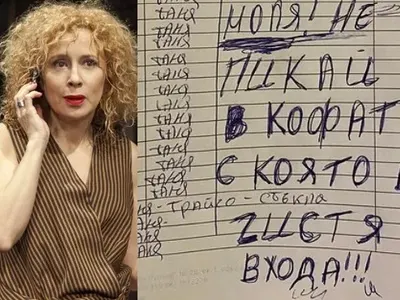 ТАНЯ
ТАНЯ МОЛЯ! НЕ
ТАНЯ
ТАНЯ
ТАНЯ ПИКАЙ
ТАНЯ
ТАНЯ
ТАНЯ В КОФАТ
ТАНЯ
ТАНЯ
ТАНЯ
ТАНЯ С КОЯТО
ТАНЯ
ТАНЯ
НЯ - ТРАЙКО - СТЪКЛА
АНЯ ЧИСТЯ
ТАНЯ
ВХОДА!!!